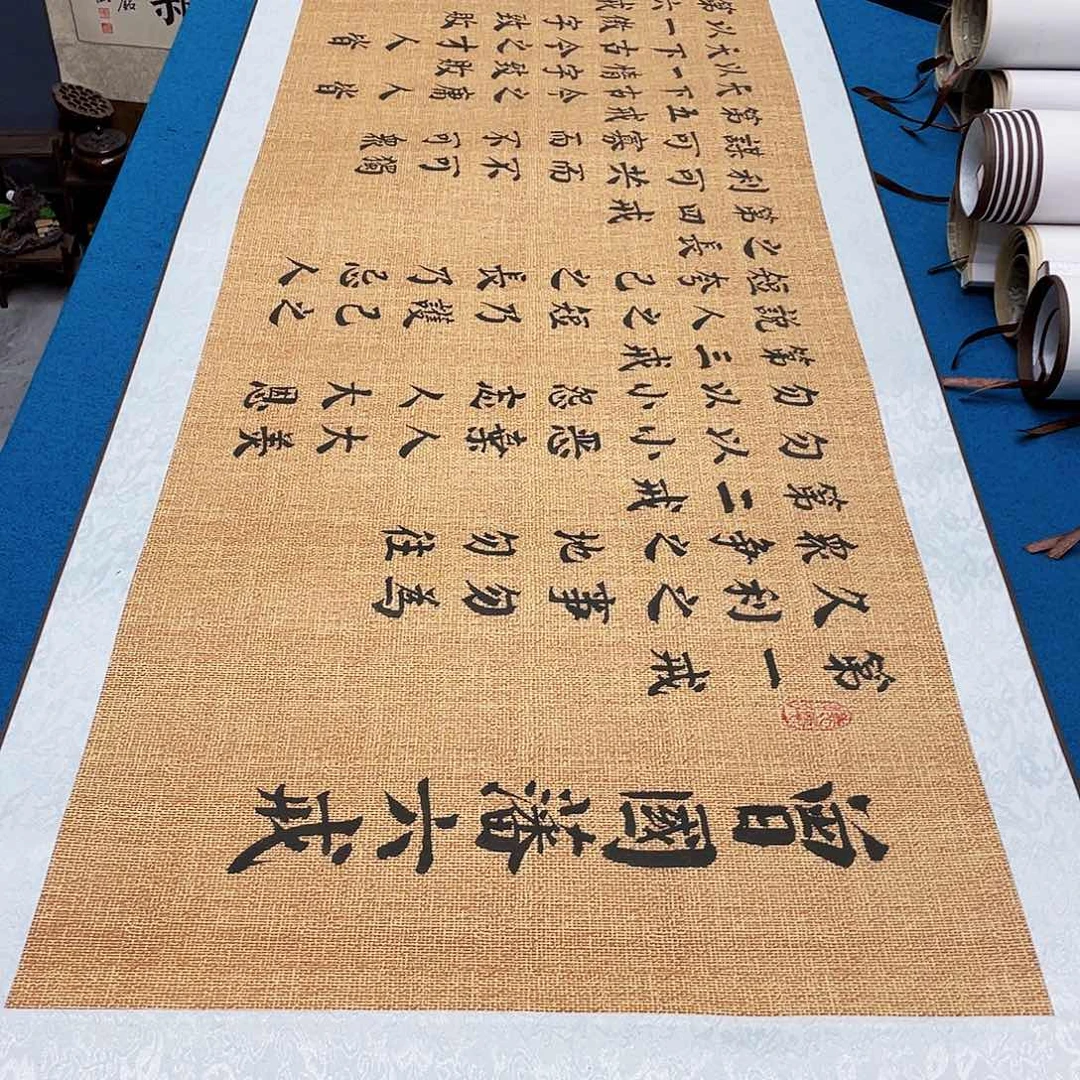 曾國藩六戒
第一戒
久利之事勿爲
眾爭之地勿往
第二戒
勿以小惡棄人大美
勿以小怨忘人大恩
第三戒
說人之短乃護己之
短夸己之長乃忌人
之長
第四戒
利可共而不可獨
謀可寡而不可眾
第五戒
天下古今之庸人皆
以一惰字致敗
天下古今之才人皆
以一傲字致敗
第六戒